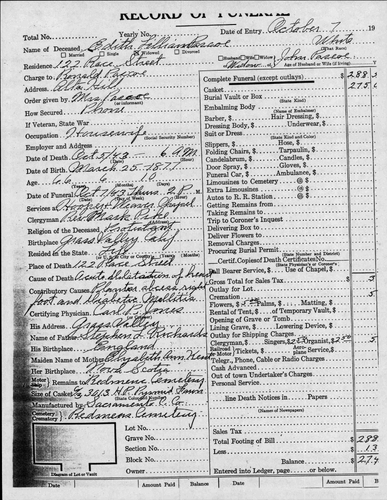 RECORD OF FUNERAL
Total No.
Yearly No.
Date of Entry October 7 19
Name of Deceased Edith Lillian Pascoe
White
Married Single Widowed Divorced
Husband Wife Widow
Widow of John Pascoe
Residence 122 Race Street
Charge to Ronald Pascoe
Address Alta Hill
Order given by Mrs Pascoe
How Secured Phone
If Veteran, State War
Occupation Housewife
(Social Security Number)
Employer and Address
Date of Death Oct 5/43 6 A.M.
Date of Birth March 25, 1877
Age 66 6 10
Date of Funeral Oct 7/43 Thurs. 2 P.M.
Services at Hooper Weaver Chapel
Clergyman
Religion of the Deceased Protestant
Birthplace Grass Valley Calif
Resided in the State Life
Place of Death 122 Race Street
Cause of Death Acute dilatation of heart
Contributory Causes Plantar abscess right
foot and diabetic mellitis
Certifying Physician Carl P. Jones
His Address Grass Valley
Name of Father Stephen J. Richards
His Birthplace England
Maiden Name of Mother Elizabeth Ann
Her Birthplace Nova Scotia
Remains to Redmens Cemetery
Size of Casket 6/3
Manufactured by Sacramento C. Co.
Cemetery Redmens Cemetery
Diagram of Lot or Vault
Lot No.
Grave No.
Section No.
Block No.
Owner
Complete Funeral (except outlays) $ 288
Casket 275
Burial Vault or Box
(State Kind)
Embalming Body
(Name of Embalmer)
Barber, $ Hair Dressing, $
Dressing Body, $ Underwear, $
Suit or Dress
(State Kind and Color)
Slippers, $ Hose, $
Folding Chairs, $ Tarpaulin, $
Candelabrum, $ Candles, $
Door Spray, $ Gloves, $
Funeral Car, $ Ambulance, $
Limousines to Cemetery
Extra Limousines
Autos to R. R. Station
Getting Remains from
Taking Remains to
Trip to Coroner's Inquest
Delivering Box to
Deliver Flowers to
Removal Charges
Procuring Burial Permit
(State Number and District)
Certif. Copies of Death Certificates No.
Pall Bearer Service, Use of Chapel, $
Gross Total for Sales Tax
Outlay for Lot
Cremation
Flowers, $ Palms, $ Matting, $
Rental of Tent, $ of Temporary Vault, $
Opening of Grave or Tomb
Lining Grave, $ Lowering Device, $
Outlay for Shipping Charges
Clergyman, $ Singers, $ Organist, $ 2.50 5
Telegr., Phone, Cable or Radio Charges
Cash Advanced
Out of town Undertaker's Charges
Personal Service
line Death Notices in Papers
(Names of Newspapers)
Sales Tax
Total Footing of Bill $ 288
Less 13
Balance $ 274
Entered into Ledger, page or below.